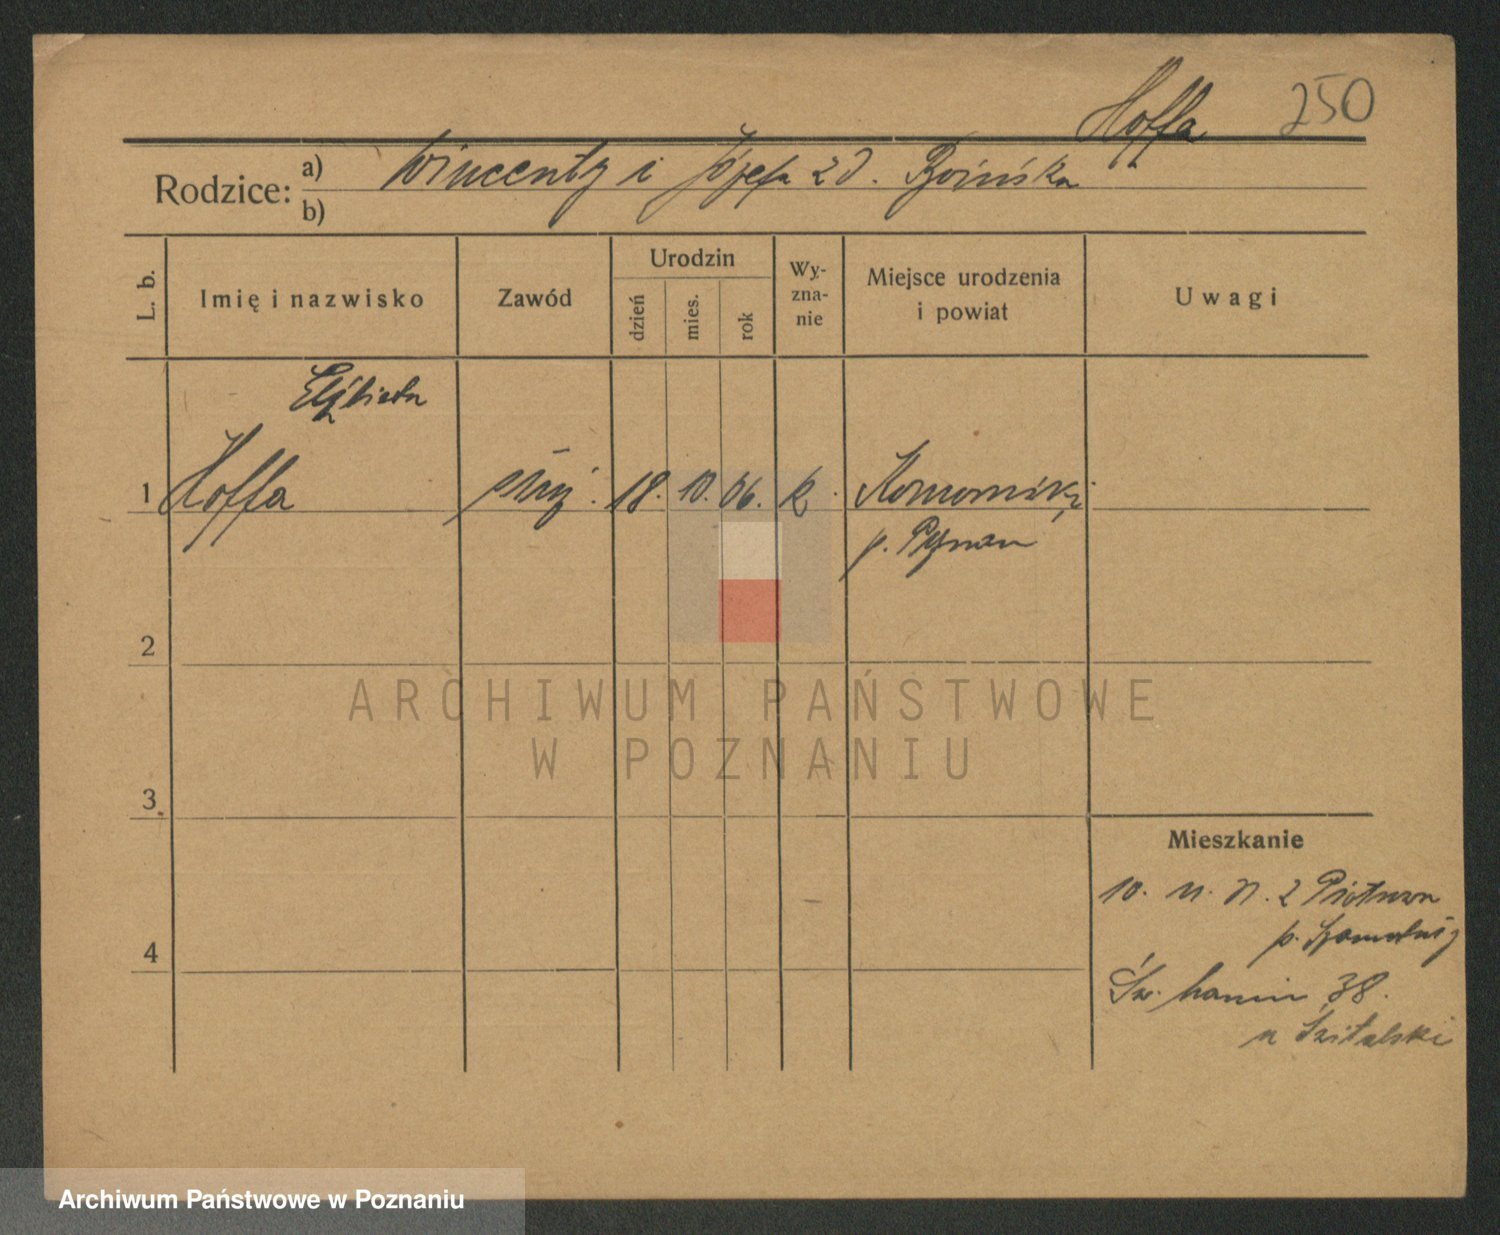 Hoffa 250
Rodzice: a) Wincenty i Józefa zd.
b)
L. b.
Imię i nazwisko
Zawód
Urodzin
dzień
mies.
rok
Wy-
zna-
nie
Miejsce urodzenia
i powiat
Uwagi
Elżbieta
1 Hoffa 18. 10. 06. k. Komorniki
p.
2
ARCHIWUM PAŃSTWOWE
W POZNANIU
3
Mieszkanie
4
10. 11. 31. z
p.
Św. Marcin 38.
u Szitalski
Archiwum Państwowe w Poznaniu